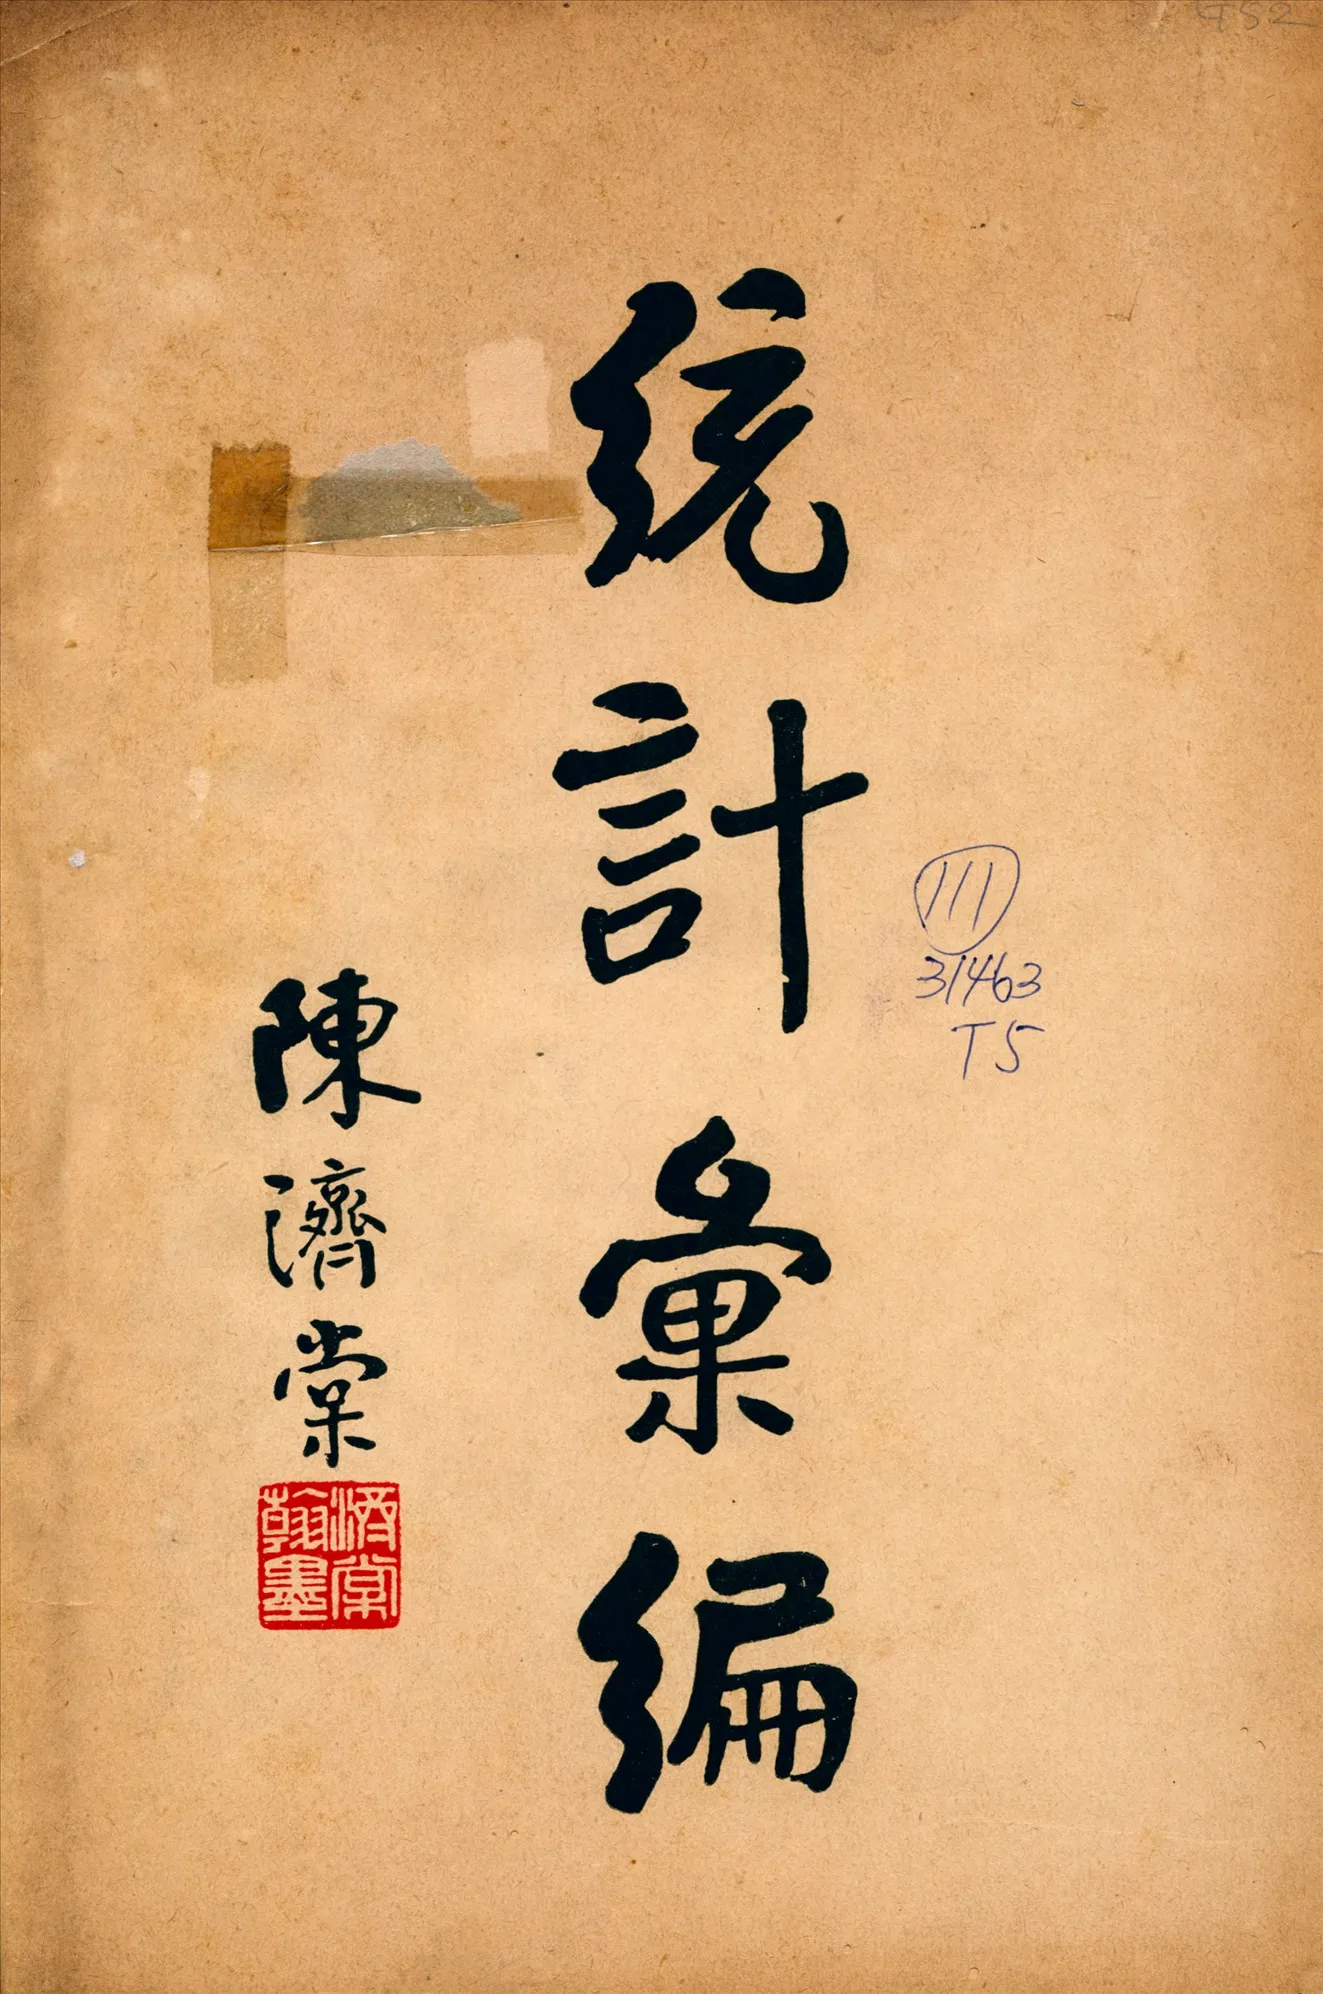 統計彙編
陳濟棠
濟棠
翰墨
111
31463
T5
952